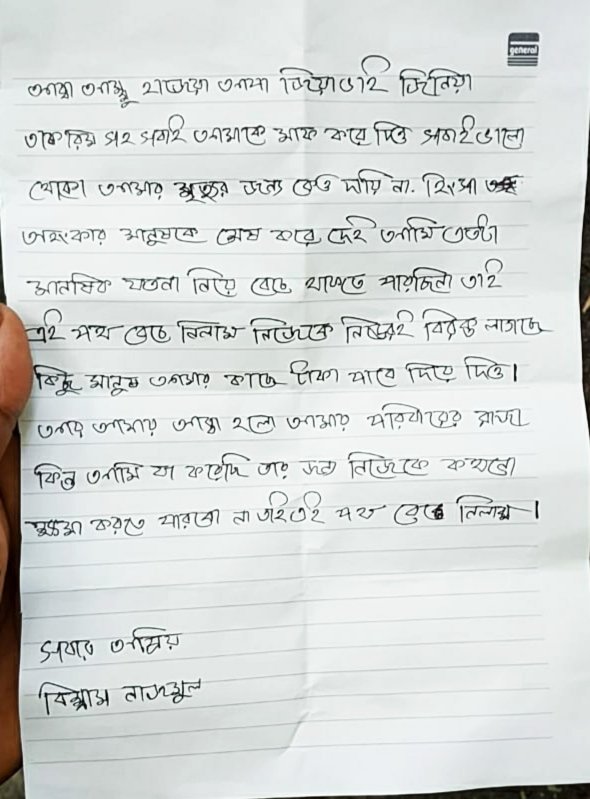 general
আব্বা আম্মু খাদেজা আপা জিয়াভাই জিনিয়া
তাকরিম সহ সবাই আমাকে মাফ করে দিও সবাই ভালো
থেকো আমার মৃত্যুর জন্য কেও দায়ি না. হিংসা
অহংকার মানুষকে শেষ করে দেই আমি এতটা
মানষিক যতনা নিয়ে বেচে থাকতে পারছিনা তাই
এই পথ বেচে নিলাম নিজেকে নিজেরই বিরক্ত লাগছে
কিছু মানুষ আমার কাছে টাকা পাবে দিয়ে দিও।
আর আমার আব্বা হলো আমার পরিবারের রাজা
কিন্তু আমি যা করেছি তার জন্য নিজেকে কখনো
ক্ষমা করতে পারবো না তাই এই পথ বেচে নিলাম।
সবার অপ্রিয়
বিশ্বাস নাজমুল